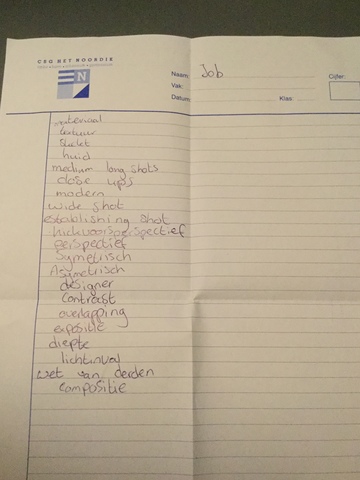 CSG HET NOORDIK
N
Naam: Job
Cijfer:
Vak:
Datum:
Klas:
materiaal
textuur
Skelet
huid
medium long shots
close ups
modern
wide shot
establishing shot
kickvorsperspectief
perspectief
Symetrisch
Asymetrisch
designer
contrast
overlapping
expositie
diepte
lichtinval
wet van derden
compositie